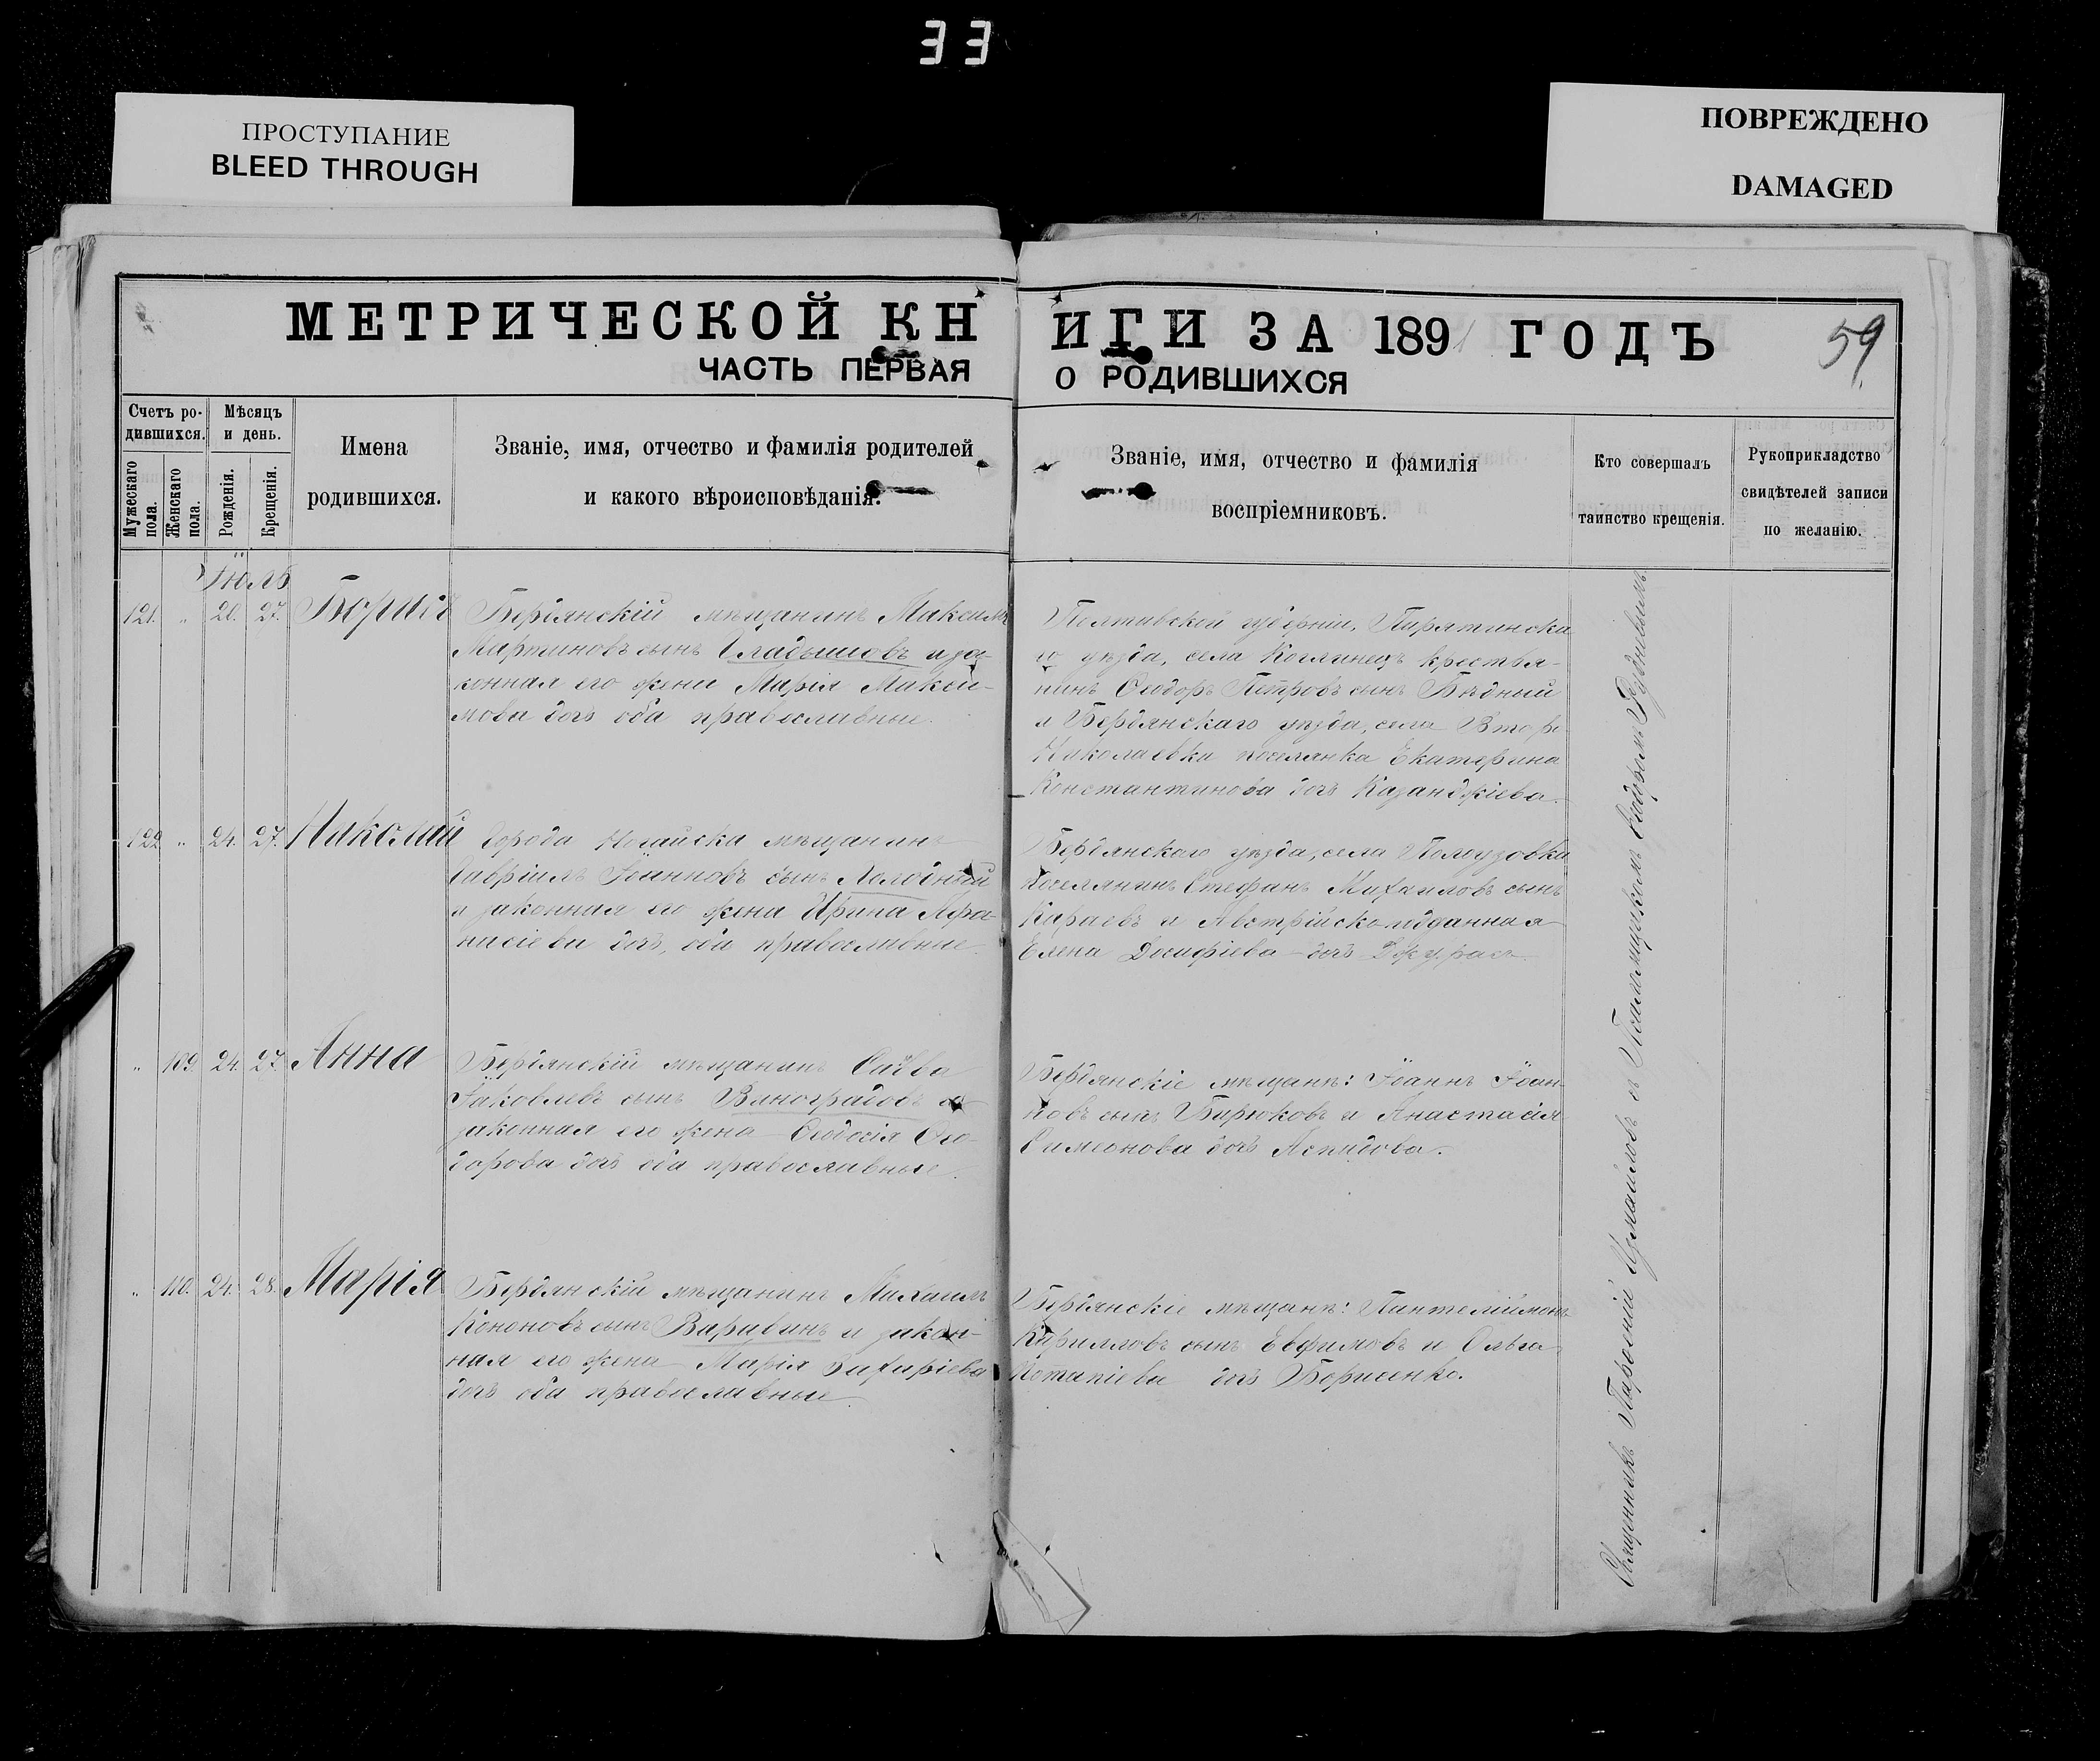 33
ПРОСТУПАНИЕ
BLEED THROUGH
ПОВРЕЖДЕНО
DAMAGED
МЕТРИЧЕСКОЙ КНИГИ ЗА 1891 ГОДЪ
59
ЧАСТЬ ПЕРВАЯ О РОДИВШИХСЯ
Счетъ ро-
дившихся.
Мужескаго
пола.
Женскаго
пола.
Мѣсяцъ
и день.
Рожденія.
Крещенія.
Имена
родившихся.
Званіе, имя, отчество и фамилія родителей
и какого вѣроисповѣданія.
Званіе, имя, отчество и фамилія
воспріемниковъ.
Кто совершалъ
таинство крещенія.
Рукоприкладство
свидѣтелей записи
по желанію.
Іюль
121. " 20. 27. Борисъ
Бердянскій мѣщанинъ Максимъ
Мартиновъ сынъ Гладышовъ и за-
конная его жена Марія Макси-
мова дочь оба православные.
Полтавской губерніи, Пирятинска
го уѣзда, села крестья-
нинъ Ѳеодоръ Петровъ сынъ Бѣдный
и Бердянскаго уѣзда, села Втор.
Николаевки поселянка Екатерина
Константинова дочь Казанджіева.
122 " 24. 27. Николай
Города Ногайска мѣщанинъ
Гавріилъ Іоанновъ сынъ
и законная его жена Ирина Афа-
насіева дочь, оба православные.
Бердянскаго уѣзда, села
поселянинъ Стефанъ Михаиловъ сынъ
Караевъ и Австрійскоподданная
Елена Досифіева дочь
" 109. 24. 27. Анна
Бердянскій мѣщанинъ Савва
Іаковлевъ сынъ Виноградовъ и
законная его жена Ѳеодосія Ѳео-
дорова дочь оба православные.
Бердянскіе мѣщане: Іоаннъ Іоан-
новъ сынъ Бирюковъ и Анастасія
Симеонова дочь Аспидова.
" 110. 24. 28. Марія
Бердянскій мѣщанинъ Михаилъ
Кононовъ сынъ Варавинъ и закон-
ная его жена Марія Захаріева
дочь оба православные.
Бердянскіе мѣщане: Пантелеймонъ
Кирилловъ сынъ Евфимовъ и Ольга
Потапіева дочь Борисенко.
Священникъ Парѳеній Измаиловъ съ Псаломщикомъ